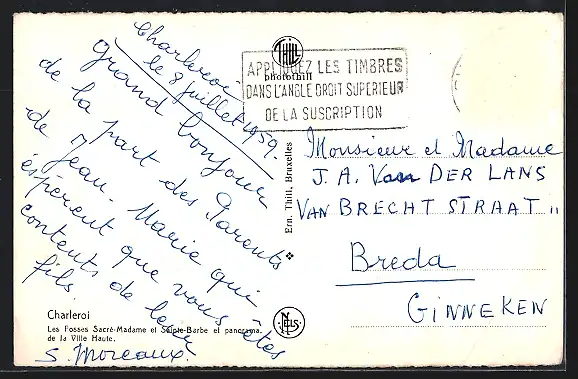 Charleroi
le 8 juillet 1959.
Grand bonjour
de la part des Parents
de Jean-Marie qui
espèrent que vous êtes
contents de leur
fils.
S. Moreaux.
Charleroi
Les Fosses Sacré-Madame et Sainte-Barbe et panorama.
de la Ville Haute.
THILL
photothill
APPLIQUEZ LES TIMBRES
DANS L'ANGLE DROIT SUPERIEUR
DE LA SUSCRIPTION
Ern. Thill, Bruxelles
NELS
Monsieur et Madame
J. A. Van DER LANS
VAN BRECHT STRAAT 11
Breda
GINNEKEN